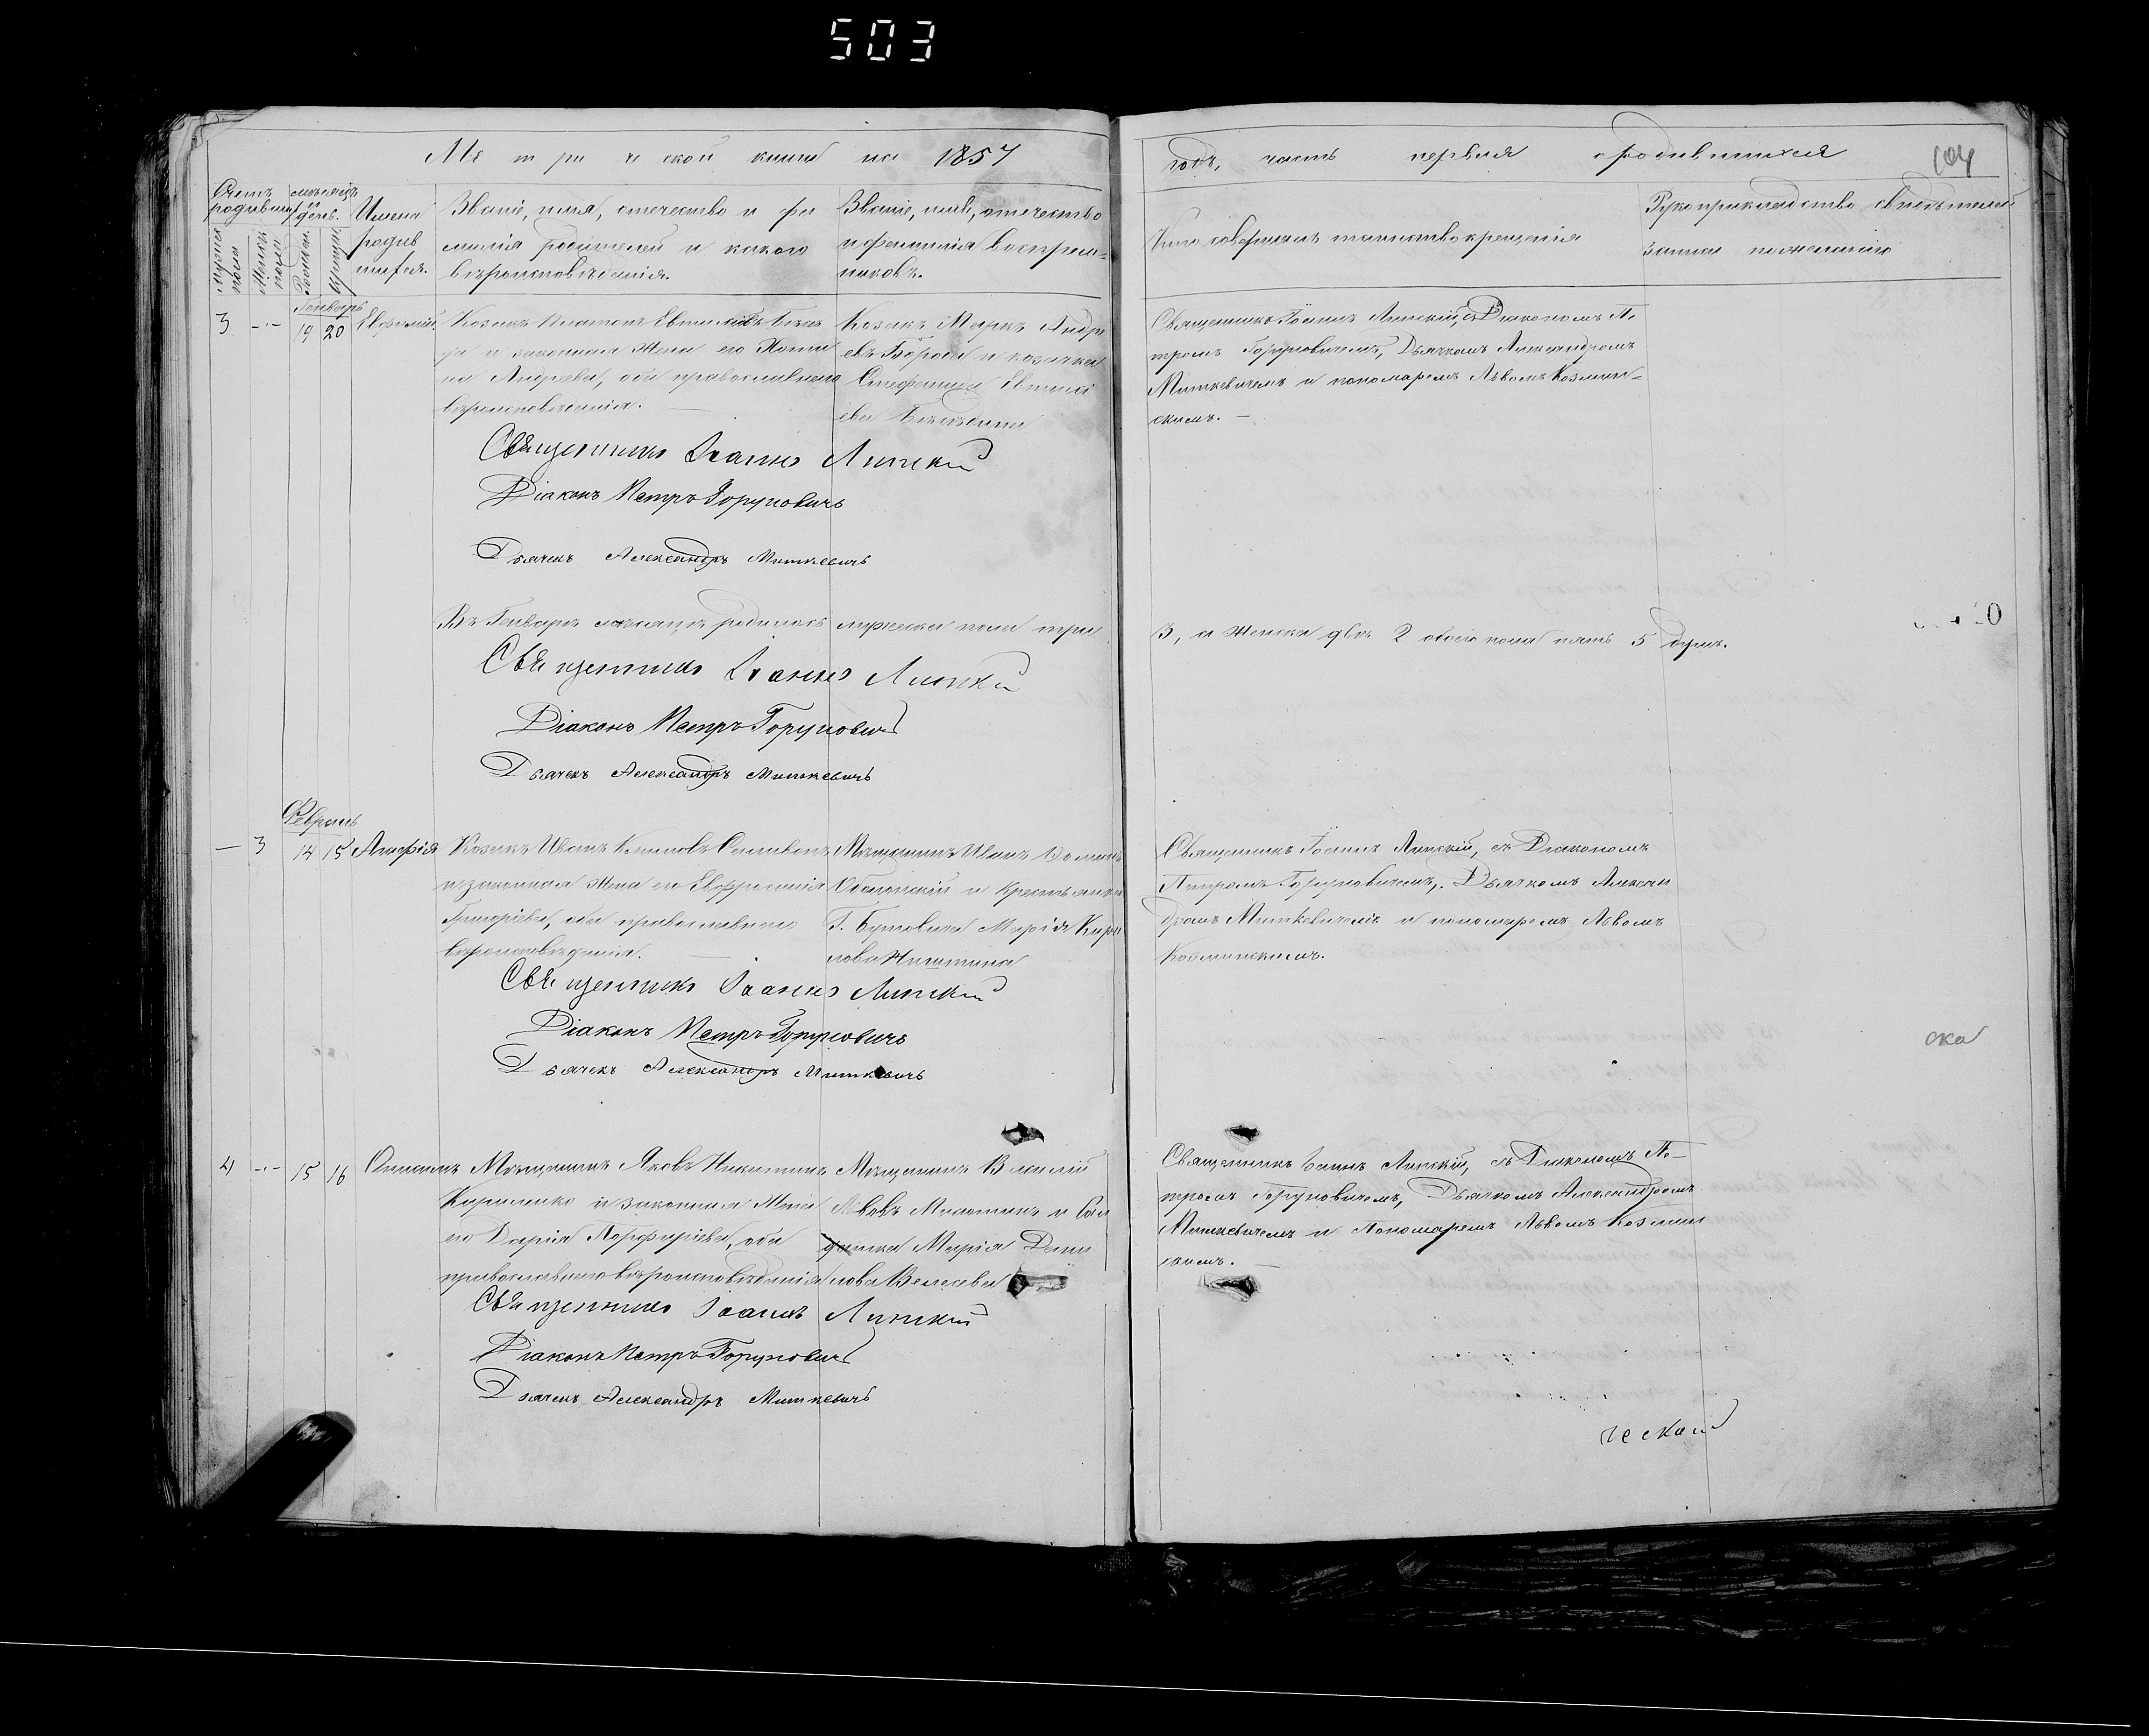 503
Ме т ри че ской книги на 1857
годъ, часть первая о родившихся
104
Счетъ родившихся
Мужеска пола
Женска пола
мѣсяцъ и день.
Рожден.
Крещен.
Имена родив шихся.
Званіе, имя, отечество и фа
милія родителей и какого
вѣроисповѣданія.
Званіе, имя, отечество
и фамилія воспріем-
никовъ.
Кто совершалъ таинство крещенія
Рукоприкладство свидѣтелей
записи по желанію
Генварь
3 -"- 19 20 Евфимій
Козакъ Платонъ Евтихіевъ
и законная жена его
Андреева, оба православнаго
вѣроисповѣданія. —
Козакъ Марко Андре
евъ и козачка
Стефанида Евтихі
ева
Священникъ Іоаннъ Липскій, съ Діакономъ Пе
тромъ Горуновичемъ, Дьячкомъ Александромъ
Миткевичемъ и пономаремъ Львомъ Козмин-
скимъ. —
Священникъ Іоаннъ Липскій
Діаконъ Петръ Горуновичъ
Дьячекъ Александръ Миткевичъ
Въ Генварѣ мѣсяцѣ родилось мужеска пола три
3, а женска двѣ 2 обоего пола пять 5 душъ.
Священникъ Іоаннъ Липскій
Діаконъ Петръ Горуновичъ
Дьячекъ Александръ Миткевичъ
Февраль
— 3 14 15 Агафія
Козакъ Иванъ Климовъ
и законная жена его Евфросинія
Григоріева, оба православнаго
вѣроисповѣданія. —
Мѣщанинъ Иванъ
Оболонскій и крестьянка
Г. Бутовича Марія Кири
лова Никитина
Священникъ Іоаннъ Липскій, съ Діакономъ
Петромъ Горуновичемъ, Дьячкомъ Алексан
дромъ Миткевичемъ и пономаремъ Львомъ
Козминскимъ.
Священникъ Іоаннъ Липскій
Діаконъ Петръ Горуновичъ
Дьячекъ Александръ Миткевичъ
ска
4 -"- 15 16 Онисимъ
Мѣщанинъ Яковъ Никитинъ
Кириленко и законная жена
его Дарія Порфиріева, оба
православнаго вѣроисповѣданія
Мѣщанинъ Василій
Львовъ Милютинъ и Сол
датка Марія Дани
лова
Священникъ Іоаннъ Липскій, съ Діакономъ Пе-
тромъ Горуновичемъ, Дьячкомъ Александромъ
Миткевичемъ и Пономаремъ Львомъ Козмин
скимъ. —
Священникъ Іоаннъ Липскій
Діаконъ Петръ Горуновичъ
Дьячекъ Александръ Миткевичъ
ческой